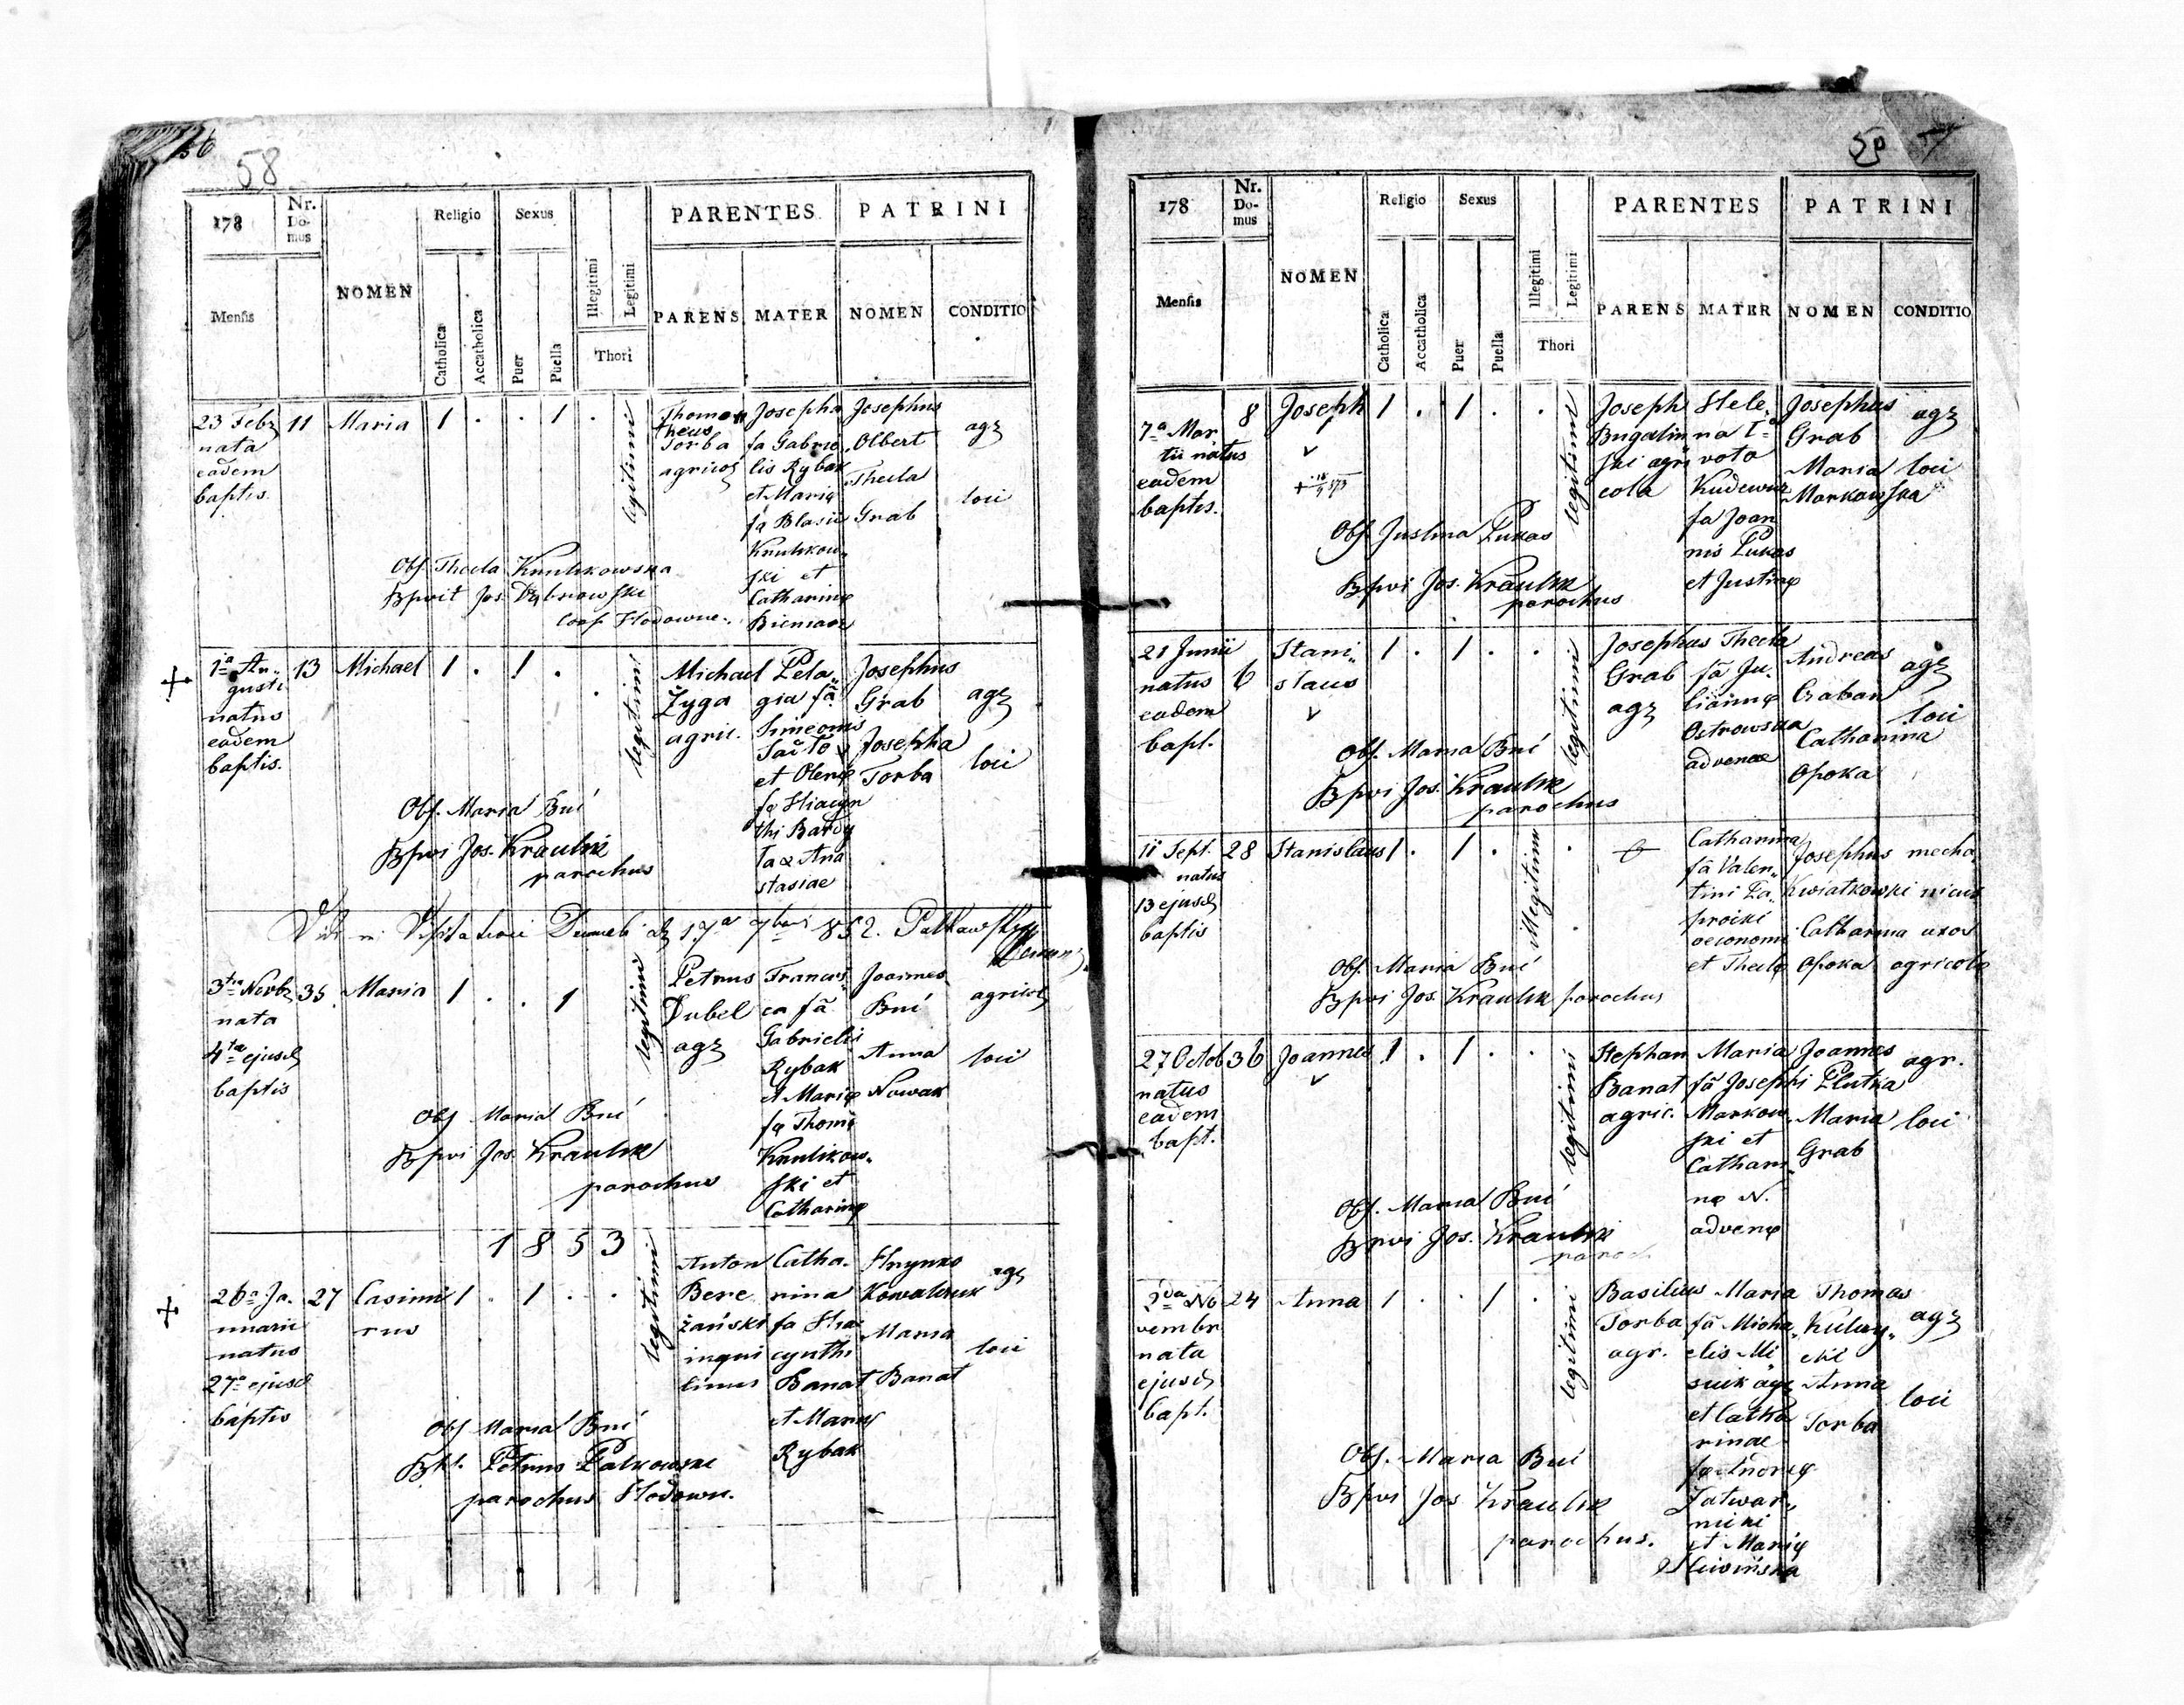 58
178
Nr. Do-mus
NOMEN
Religio
Sexus
PARENTES
PATRINI
Mensis
Catholica
Accatholica
Puer
Puella
Illegitimi
Legitimi
Thori
PARENS
MATER
NOMEN
CONDITIO
23 Febr
nata
eadem
baptis.
11
Maria
1 . . 1 .
legitimi
Torba
agricol
Josepha
fa Gabrie
lis Rybak
et Mariæ
fæ Blasii
Krulikow
ski et
Catharinæ
Josephus
Olbert
Thecla
Grab
agr
loci
Obs. Thecla Krulikowska
Bpvit Jos. Dąbrowski
coop. Hodowie.
1a Au-
gusti
natus
eadem
baptis.
13
Michael
1 . 1 . .
legitimi
Michael
Żyga
agric.
Pela„
gia fa
Simeonis
et Olenæ
fæ Hiacyn
thi Bardy
Ana
stasiae
Josephus
Grab
Josepha
Torba
agr
loci
Obs. Maria Buć
Bpvi Jos. Kraulik
parochus
17a 7bris 852.
3tia Novbr
nata
4ta ejusd
baptis
35
Maria
1 . . 1
legitimi
Petrus
Dubel
agr
Francis
ca fa
Gabrielis
Rybak
et Mariæ
fæ Thomæ
Krulikow-
ski et
Catharinæ
Joannes
Buć
Anna
Nowak
agricol
loci
Obs Maria Buć
Bpvi Jos. Kraulik
parochus
1853
26a Ja.
nuarii
natus
27a ejusd
baptis
27
Casimi
rus
1 . 1 . .
legitimi
Anton
Bere
żański
inqui
linus
Catha-
rina
fa Hia
cynthi
Banat
et Mariæ
Rybak
Hrynko
Kowalczuk
Maria
Banat
agr
loci
Obs Maria Buć
Bpt. Petrus Palkowski
parochus Hodow.
178
Nr. Do-mus
NOMEN
Religio
Sexus
PARENTES
PATRINI
Mensis
Catholica
Accatholica
Puer
Puella
Illegitimi
Legitimi
Thori
PARENS
MATER
NOMEN
CONDITIO
7a Mar
tii natus
eadem
baptis.
8
Joseph
1 . 1 . .
legitimi
Joseph
Bugalin
ski agri
cola
Hele„
na 1o
voto
fa Joan
nis Pukas
et Justinæ
Josephus
Grab
Maria
Markowska
agr
loci
Obs. Justina Pukas
Bpvi Jos. Kraulik
parochus
21 Junii
natus
eadem
bapt.
6
Stani„
slaus
1 . 1 . .
legitimi
Josephus
Grab
agr
Thecla
fa Ju„
liannæ
Ostrowska
advenæ
Andreas
Catharina
Opoka
agr
loci
Obs. Maria Buć
Bpvi Jos. Kraulik
parochus
11 Sept.
natus
13 ejusd
baptis
28
Stanislaus
1 . 1 .
illegitimi
Catharina
fa Valen„
tini
oeconomi
et Theclæ
Josephus
Kwiatkowski
Catharina
Opoka
mecha
nicus
uxor
agricolæ
Obs. Maria Buć
Bpvi Jos. Kraulik parochus
27 Octob
natus
eadem
bapt.
36
Joannes
1 . 1 . .
legitimi
Stephan
Banat
agric.
Maria
fa Josephi
Markow
ski et
Cathari
næ N.
advenæ
Joannes
Plutka
Maria
Grab
agr.
loci
Obs. Maria Buć
Bpvi Jos. Kraulik
paroch
2da No
vembr
nata
ejusd
bapt.
24
Anna
1 . . 1 .
legitimi
Basilius
Torba
agr.
Maria
fa Micha„
elis
et Catha
rinae
et Mariæ
Thomas
Anna
Torba
agr
loci
Obs. Maria Buć
Bpvi Jos Kraulik
parochus.